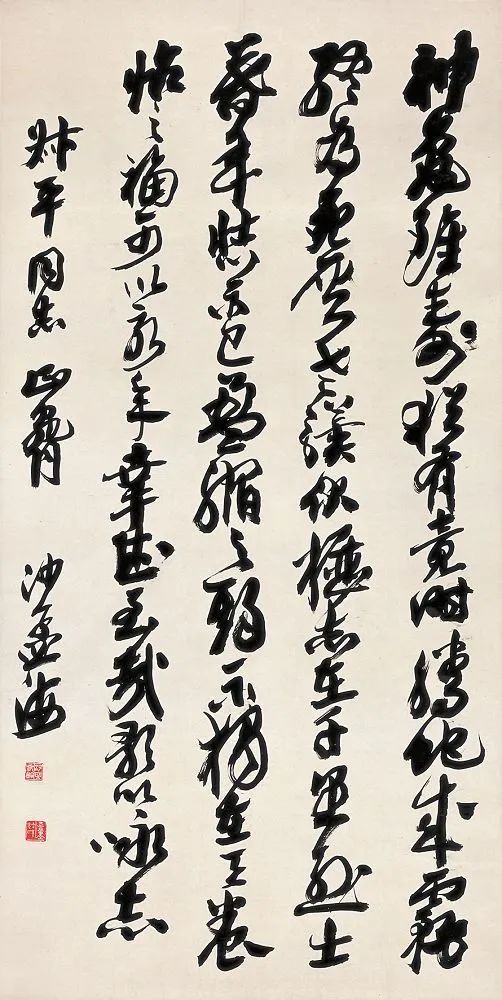 神龜雖壽猶有竟時騰蛇成霧
終為死灰老驥伏櫪志在千里烈士
暮年壯心不已盈縮之期不獨在天養
怡之福可以永年幸甚至哉歌以詠志
平同志正腕 沙孟海